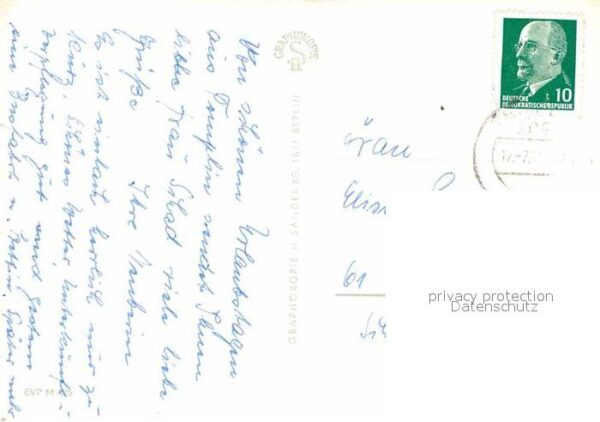 Von schönen Urlaubstagen
aus Templin sendet Ihnen
liebe Frau Schad viele liebe
Grüße Ihre
Es ist einfach herrlich nur zu
kurz. Schönes Wetter, Unterkunft
Verpflegung gut und gestern
eine u. Später mehr
GRAPHOKOPIE
GRAPHOKOPIE H. SANDER KG, 1071 BERLIN
EVP M
DEUTSCHE
DEMOKRATISCHE REPUBLIK
10
Frau
61
privacy protection
Datenschutz